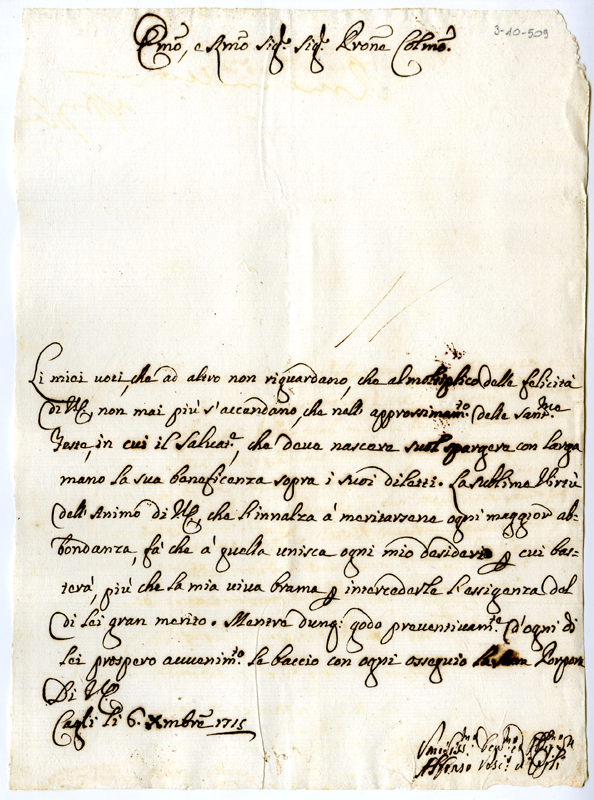 3-10-509
Emo, e Rmo Sigr. Sigr. Prone Colmo.
Li miei voti, che ad altro non riguardano, che al moltiplico delle felicità
di VE, non mai più s'accendano, che nell'approssimamto. delle Santme
Feste, in cui il Salvatre., che deve nascere suol spargere con larga
mano la sua beneficenza sopra i suoi diletti. La sublime Virtù
dell'Animo di VE, che l'innalza à meritarsene ogni maggior ab=
bondanza, fà che à quella unisca ogni mio desiderio p cui bas=
terà, più che la mia viva brama p intercederle l'essigenza del
di lei gran merito. Mentre dunq: godo preventivamte. d'ogni di
lei prospero avvenimto. le baccio con ogni ossequio la Porpora
Di VE
Cagli li 6. Xmbre 1715
Alfonso Vesco. di Cagli